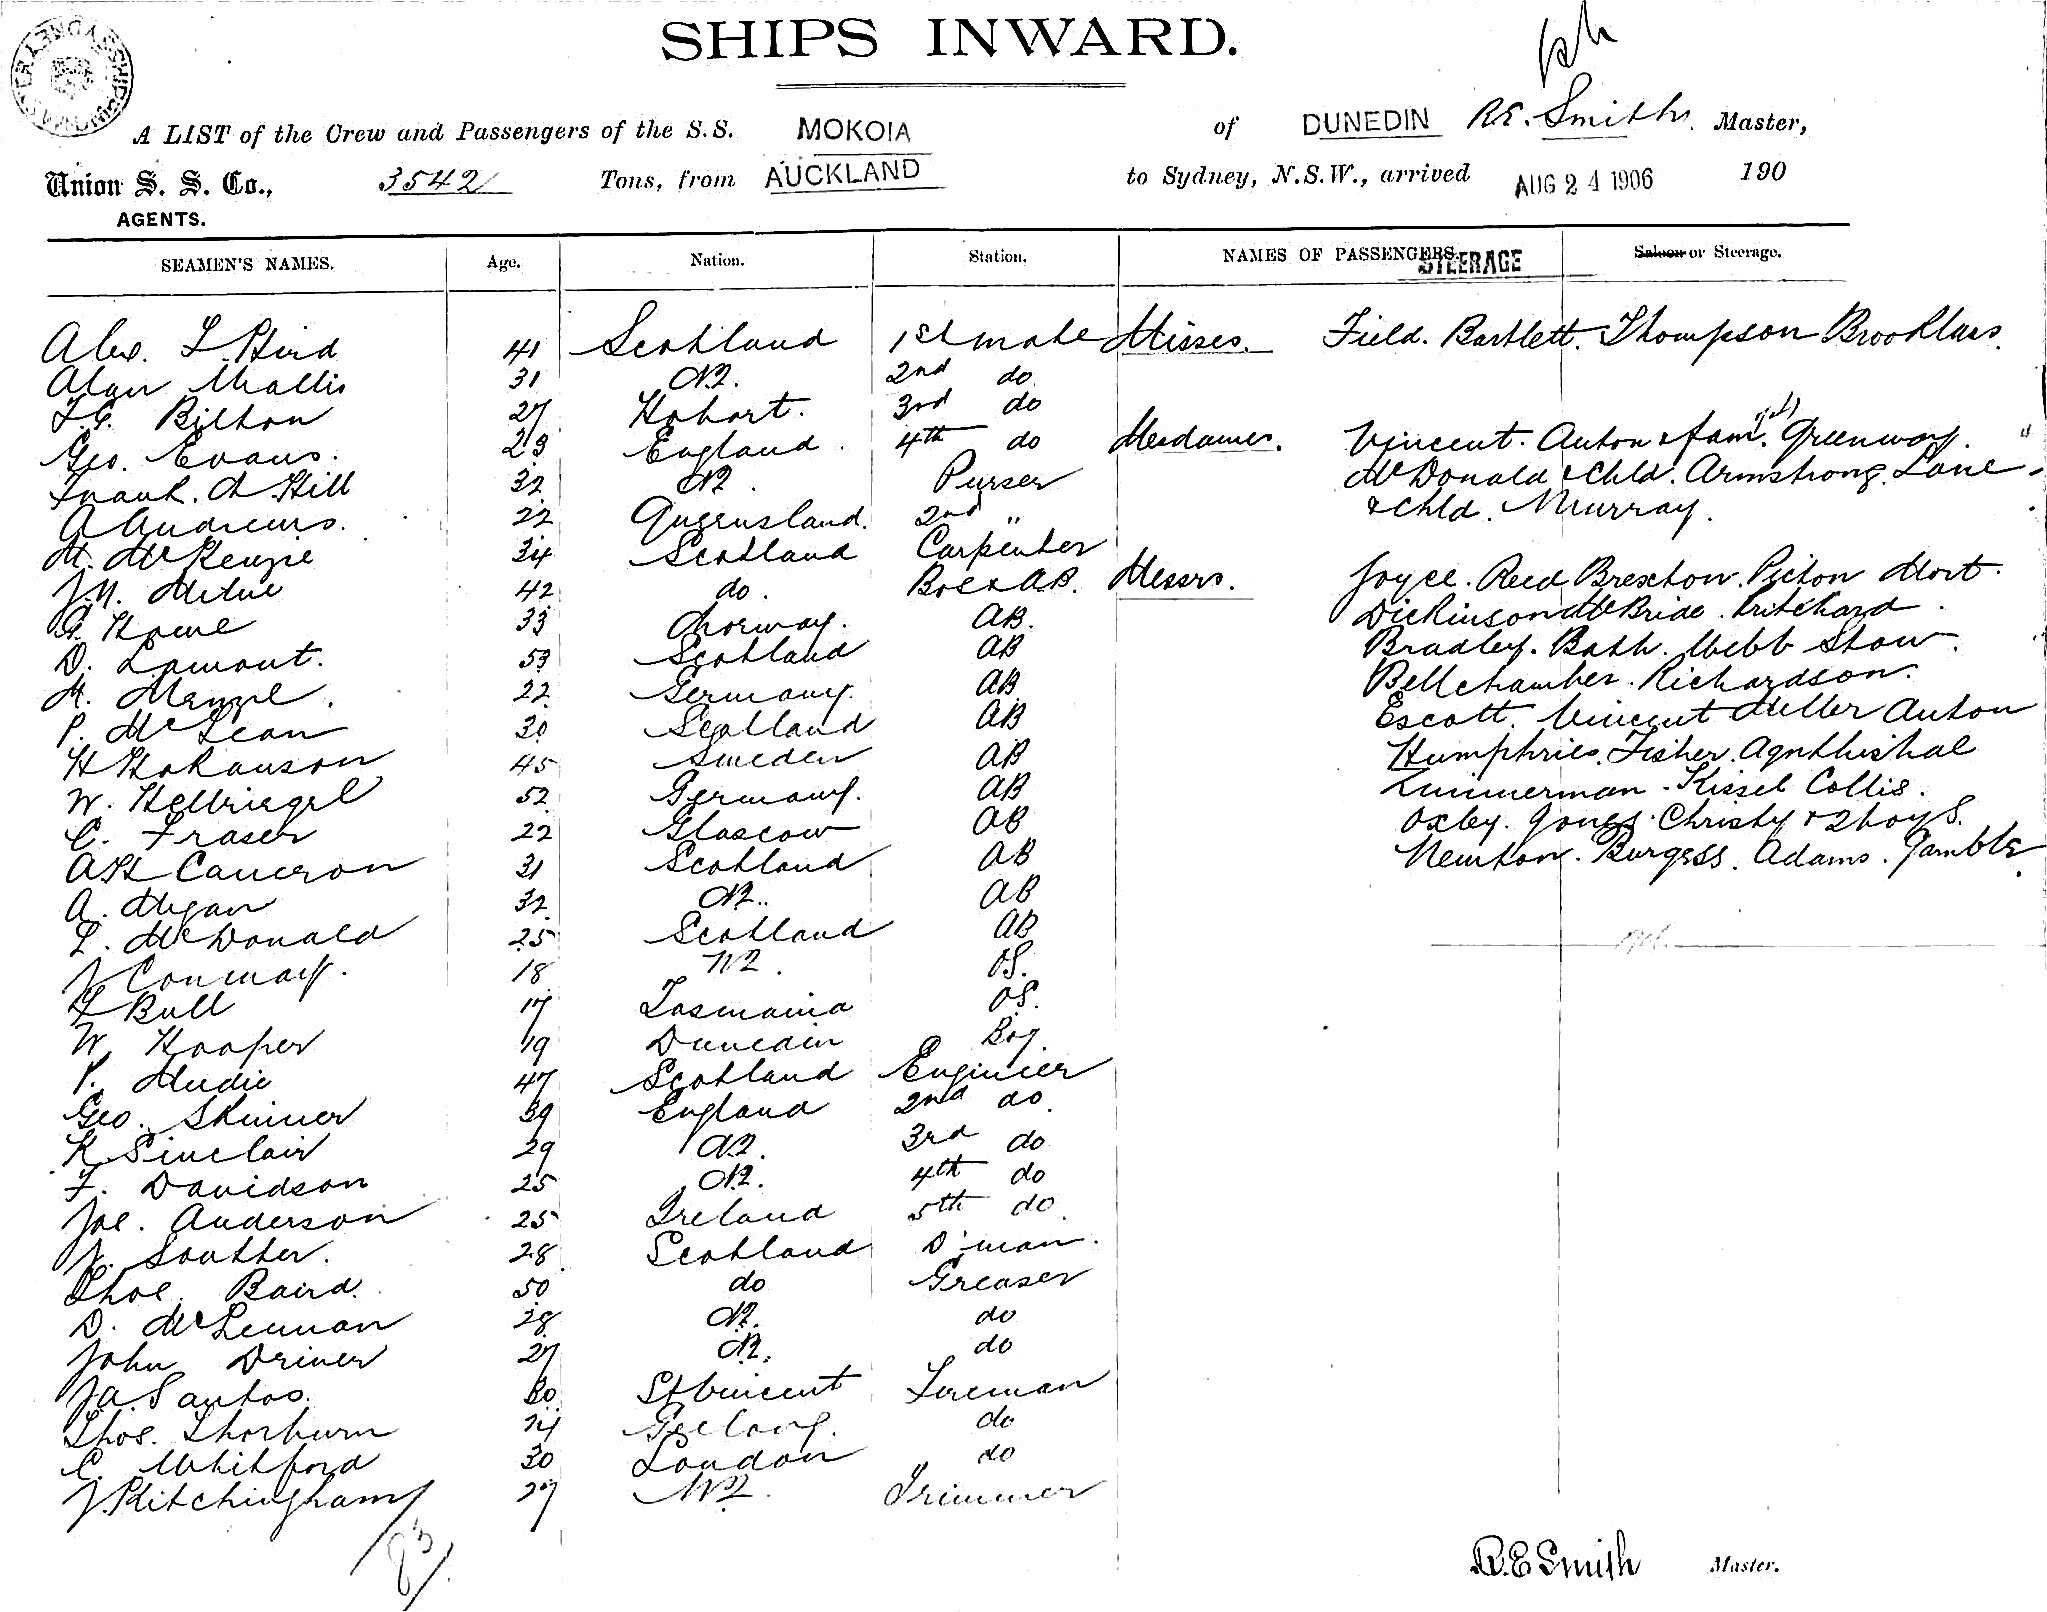 SHIPS INWARD.
A LIST of the Crew and Passengers of the S.S. MOKOIA of DUNEDIN R.E. Smith. Master,
Union S. S. Co., 3542 Tons, from AUCKLAND to Sydney, N.S.W., arrived AUG 24 1906 190
AGENTS.
SEAMEN'S NAMES. Age. Nation. Station. NAMES OF PASSENGERS. STEERAGE Saloon or Steerage.
Alex. 41 Scotland 1st mate Misses. Field. Bartlett. Thompson
Alan Wallis 31 NZ. 2nd do
Bilton 27 Hobart. 3rd do
Geo. Evans. 23 England. 4th do Mesdames. Vincent. Anton & fam. Greenway. "
Frank. A Hill 32 NZ. Purser McDonald & Chld. Armstrong. Lane
A Andrews. 22 Queensland. 2nd " & Chld. Murray.
M. McKenzie 34 Scotland Carpenter
J.N. Milne 42 do. Bos & AB. Messrs. Joyce. Reed Brexton. Picton Mort.
G. Howe 33 Norway. AB. Dickinson McBride. Pritchard.
D. Lamont. 53 Scotland AB Bradley. Bath. Webb Stow.
M. Menzel. 22 Germany. AB Bellchamber. Richardson.
P. McLean 30 Scotland AB Escott. Vincent Miller Anton
H Hokanson 45 Sweden AB Humphries. Fisher.
W. Hellriegel 52 Germany. AB Zimmerman. Kissel Collis.
C. Fraser 22 Glascow AB Oxley. Jones. Christy & 2 boys.
AH Cameron 31 Scotland AB Newton. Burgess. Adams. Gamble
A. Megan 32 NZ.. AB
L. McDonald 25 Scotland AB
J Conway. 18 NZ. OS.
F Bull 17 Tasmania OS.
W. Hooper 19 Dunedin Boy.
P. Mudie 47 Scotland Enginier
Geo. Skinner 39 England 2nd do.
K Sinclair 29 NZ. 3rd do
F. Davidson 25 NZ. 4th do
Joe. Anderson 25 Ireland 5th do.
J. Soutter. 28 Scotland D'man.
Thos. Baird. 50 do Greaser
D. McLennan 28 NZ. do
John Driver 27 NZ. do
J.A. Santos. 30 St Vincent Fireman
Thos. Thorburn 24 Geelong. do
C. Whitford 30 London do
J. Kitchingham 27 NZ. Trimmer
83
R.E Smith Master.